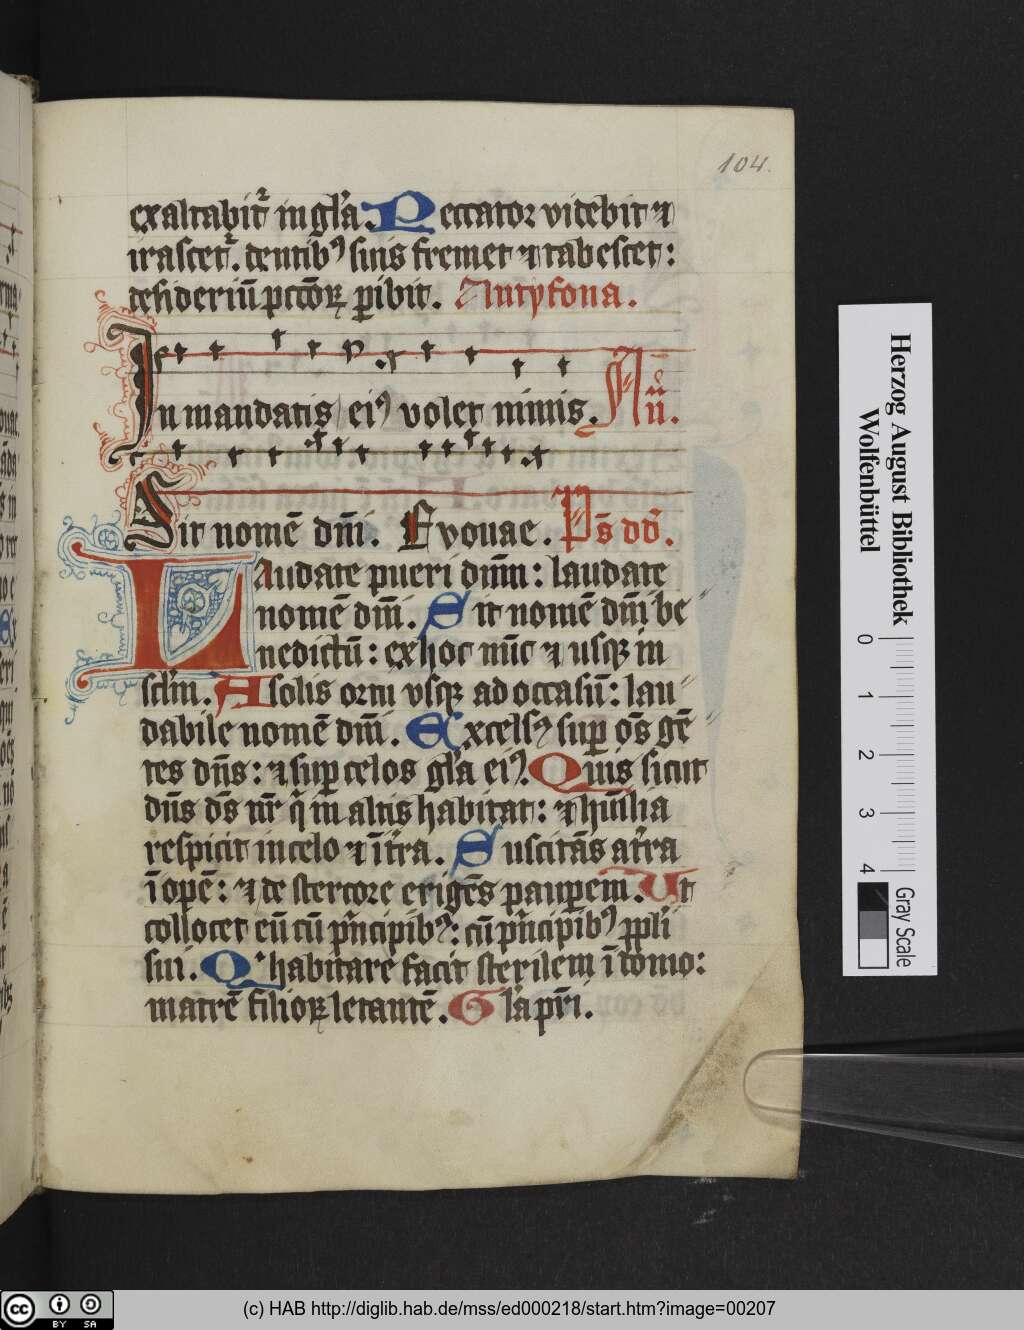 104.
exaltabit᷑ in gl̓a. Peccator videbit ⁊
irascet᷑. dentib⁹ suis fremet ⁊ tabescet:
desideriū pctōꝝ ꝑibit. Antyfona.
In mandatis ei⁹ volet nimis. An̄.
Sit nomē dn̄i. Evouae. Ps̄ dd̄.
Laudate pueri dn̄m: laudate
nomē dn̄i. Sit nomē dn̄i be
nedictū: ex hoc nūc ⁊ usqꝫ in
scl̓m. A solis ortu vsqꝫ ad occasū: lau
dabile nomē dn̄i. Excels⁹ suꝑ om̄s gē
tes dn̄s: ⁊ suꝑ celos gl̓a ei⁹. Quis sicut
dn̄s ds̄ nr̄ q̄ in altis habitat: ⁊ hūilia
respicit in celo ⁊ ī tr̓a. Suscitās a tr̓a
īopē: ⁊ de stercore erigēs pauꝑem. Ut
collocet eū cū pͥncipib⁹: cū pͥncipib⁹ ppl̓i
sui. Qͥ habitare facit sterilem ī domo:
matrē filioꝝ letantē. Gl̓a pr̄i.
Herzog August Bibliothek
Wolfenbüttel
0 1 2 3 4
Gray Scale
cc BY SA
(c) HAB http://diglib.hab.de/mss/ed000218/start.htm?image=00207